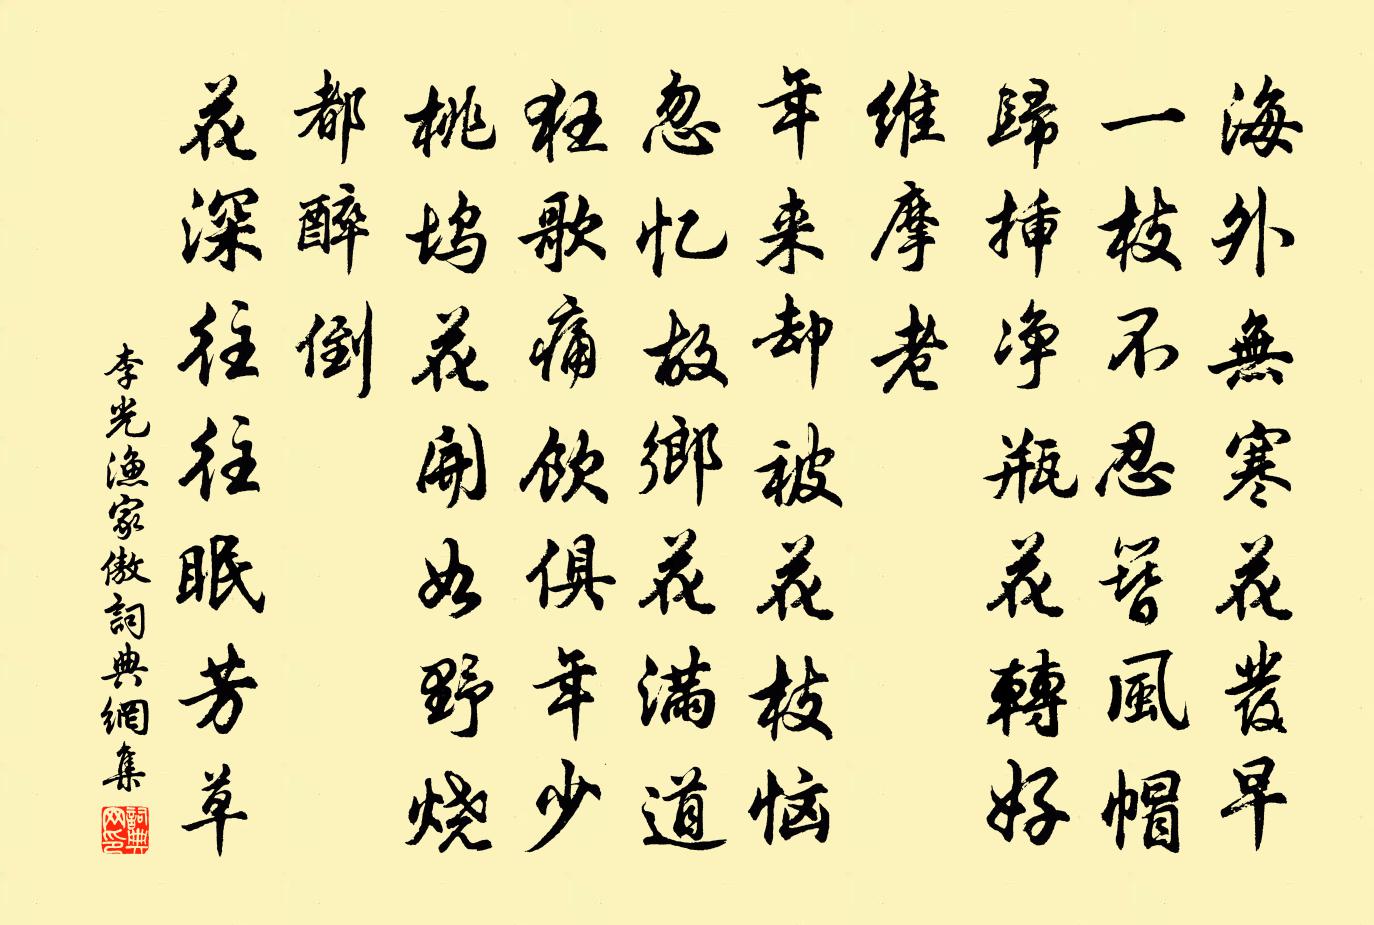 海外無寒花發早
一枝不忍簪風帽
歸揷净瓶花轉好
維摩老
年来却被花枝恼
忽忆故鄉花满道
狂歌痛飲俱年少
桃坞花開如野烧
都醉倒
花深往往眠芳草
李光漁家傲詞典網集
詞典网印